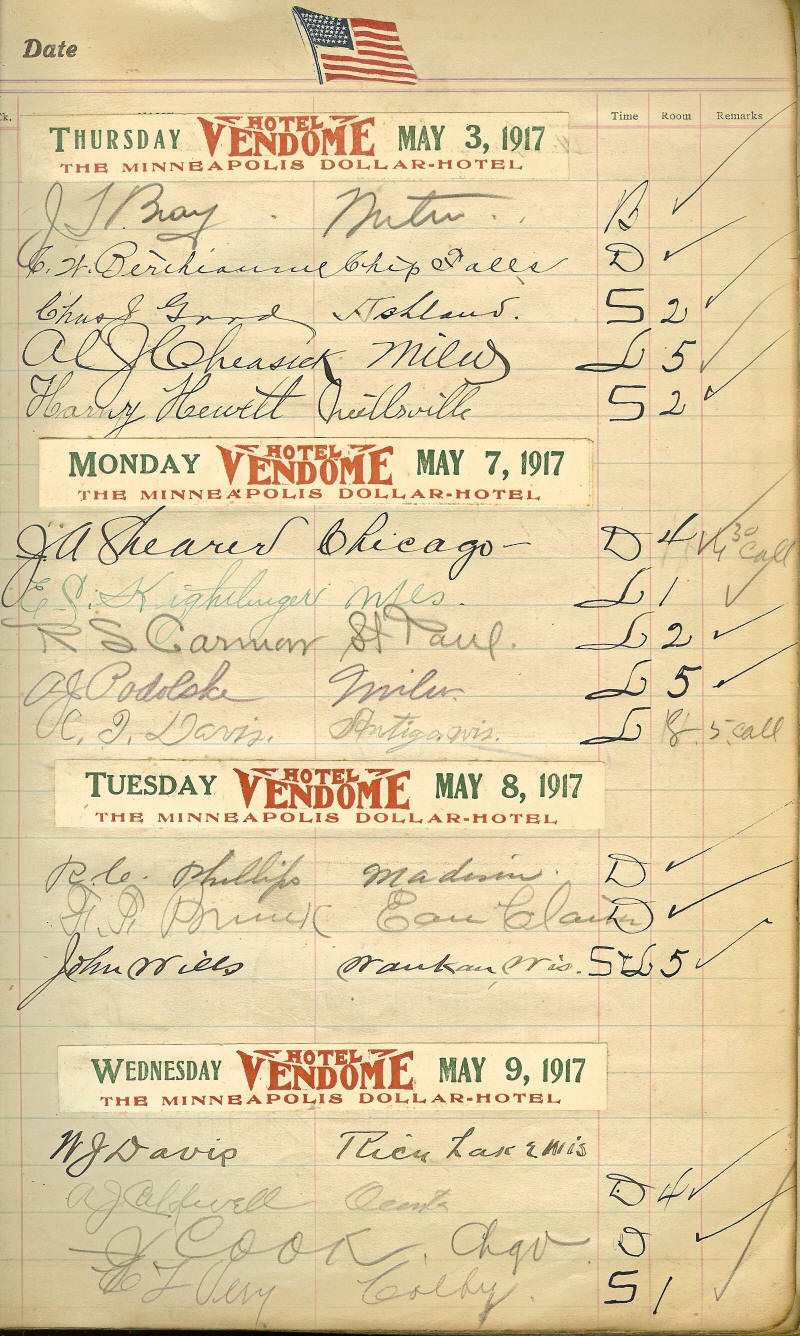 Date
Time Room Remarks
THURSDAY HOTEL VENDOME MAY 3, 1917
THE MINNEAPOLIS DOLLAR-HOTEL
J Bray B
Chip Falls D
Chas J Ashland. S 2
Al J Cheasick Milw L 5
Harry Hewitt Neillsville S 2
MONDAY HOTEL VENDOME MAY 7, 1917
THE MINNEAPOLIS DOLLAR-HOTEL
J. A Shearer Chicago D 4 call
E. S. Kightlinger Mpls. L 1
R S Carmon St Paul. L 2
A J Podolske Milw. L 5
Davis. Antigo wis. L 5 call
TUESDAY HOTEL VENDOME MAY 8, 1917
THE MINNEAPOLIS DOLLAR-HOTEL
R. C. Phillips Madison D
Eau Claire D
John Wills Waukau, Wis. S & L 5
WEDNESDAY HOTEL VENDOME MAY 9, 1917
THE MINNEAPOLIS DOLLAR-HOTEL
W J Davis Rice Lake Wis
A J Caldwell D 4
J COOK. Chgo D
Colby. S 1